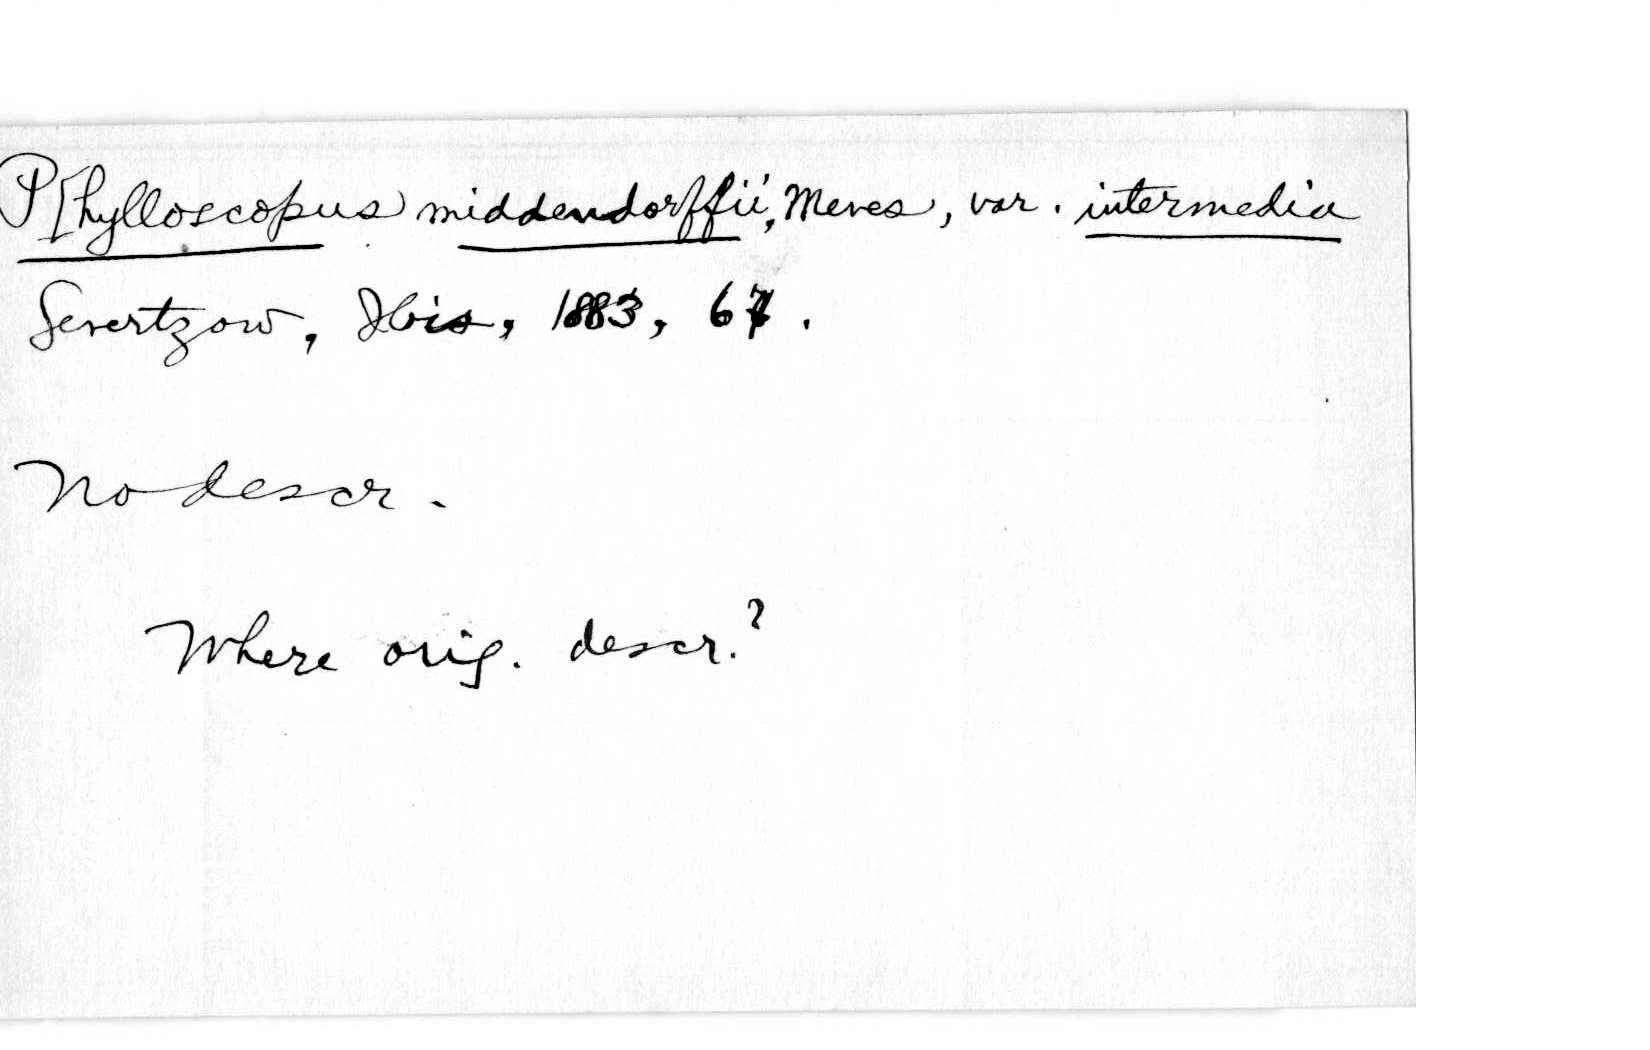 P[hylloscopus middendorffii, Meves, var. intermedia
Severtzow, Ibis, 1883, 67.
No descr.
Where orig. descr.?